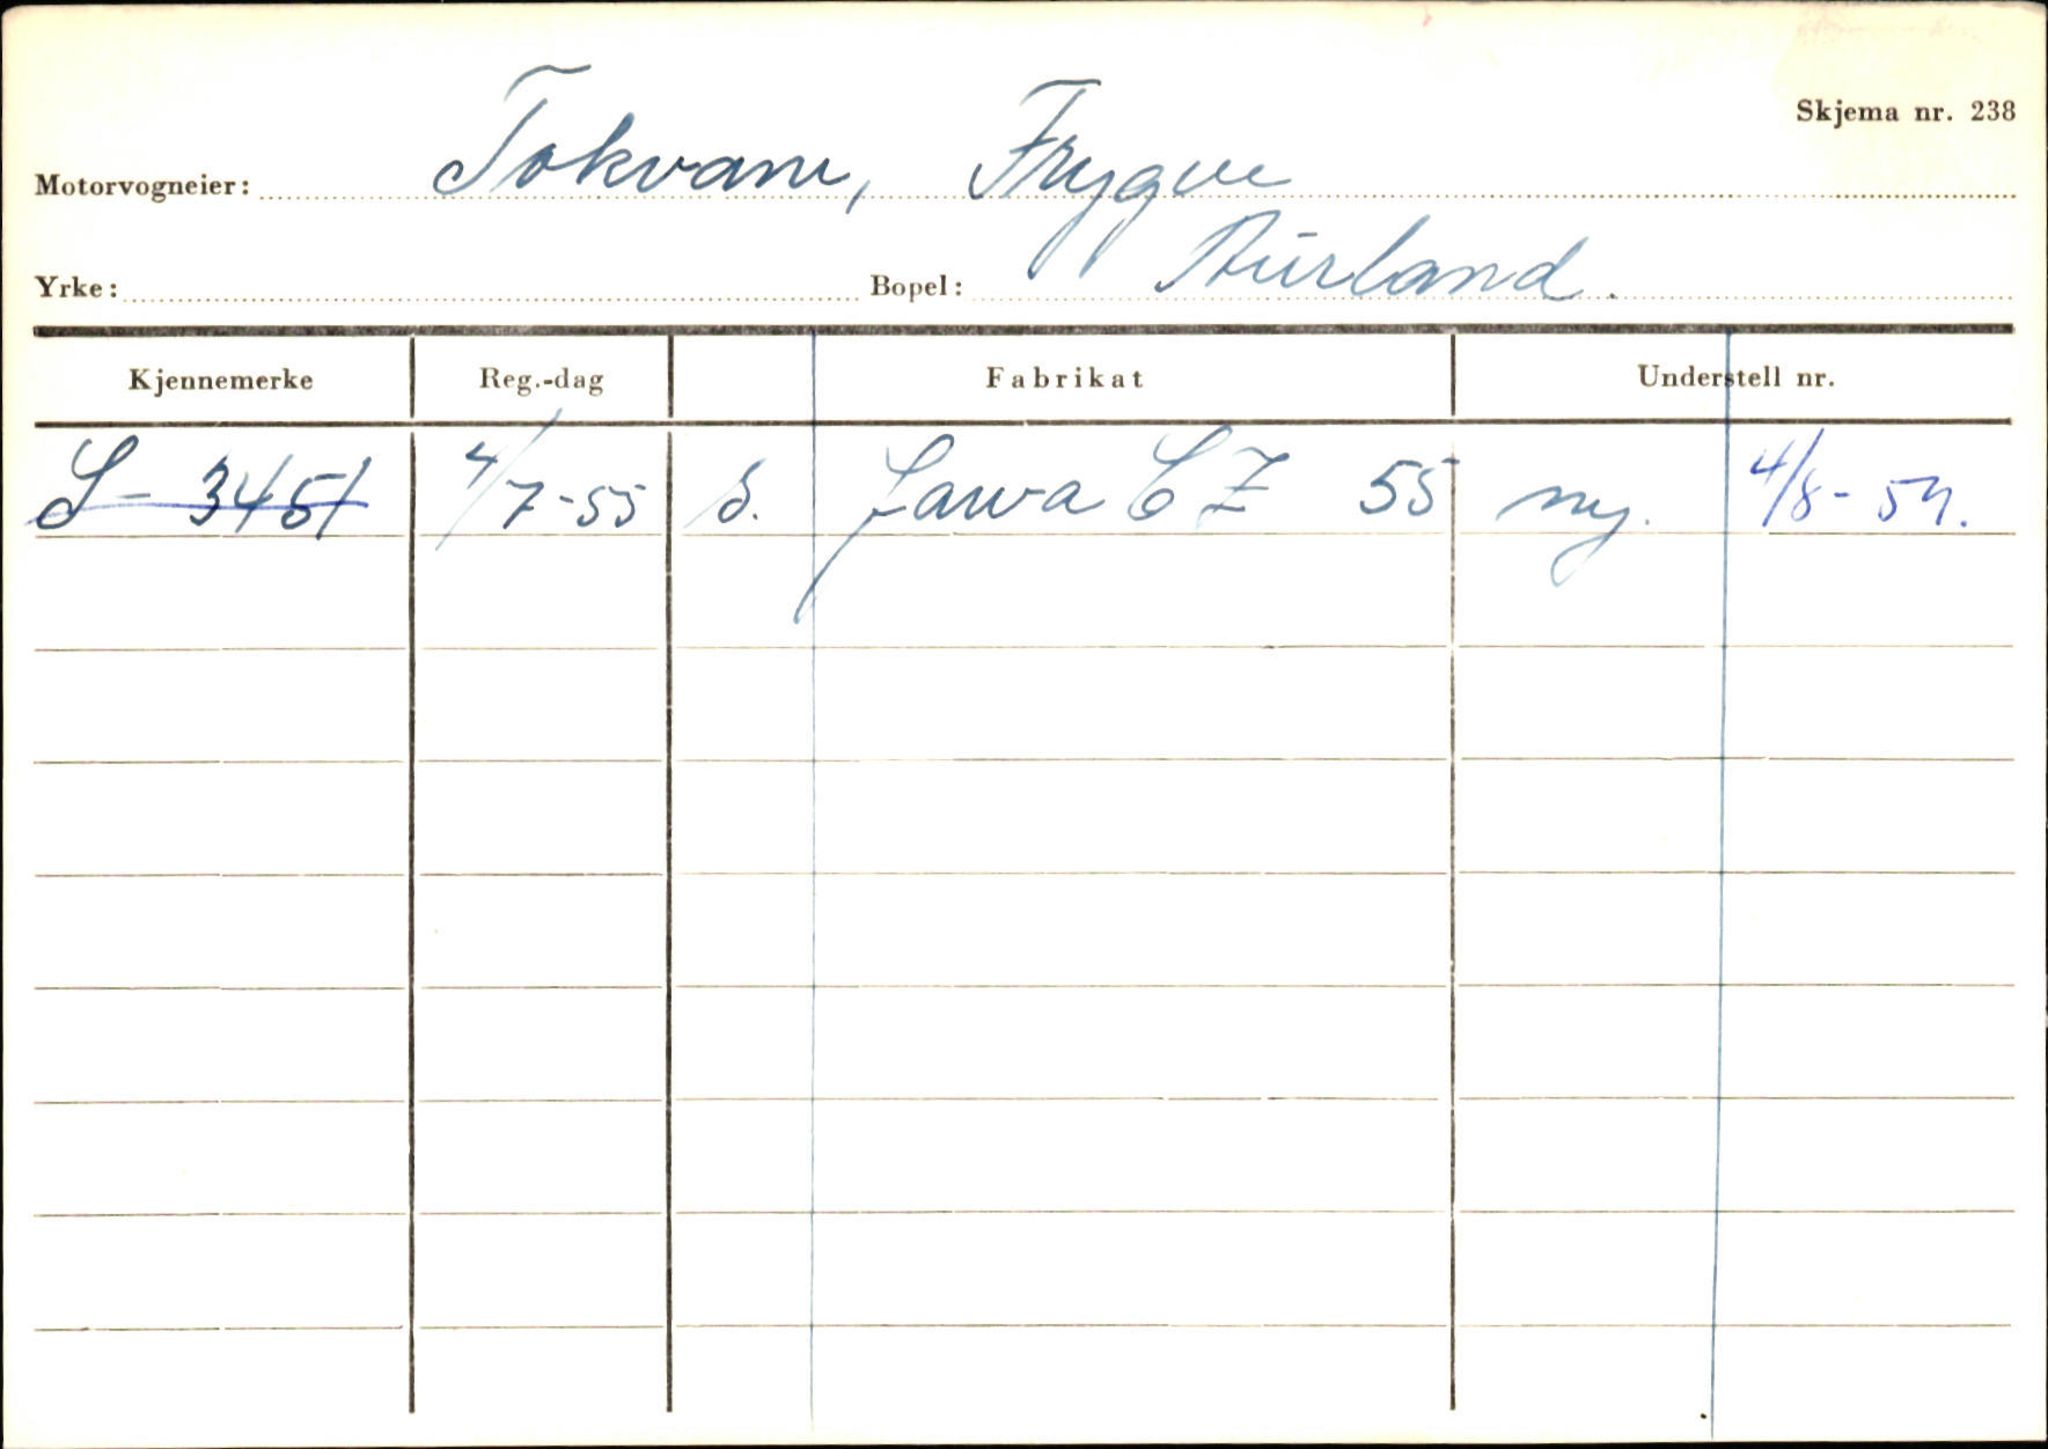 Skjema nr. 238
Motorvogneier: Tokvam, Trygve
Yrke: Bopel: Aurland.
Kjennemerke Reg.-dag Fabrikat Understell nr.
S- 3451 4/7-55 s. Jawa CZ 55 ny. 4/8-57.